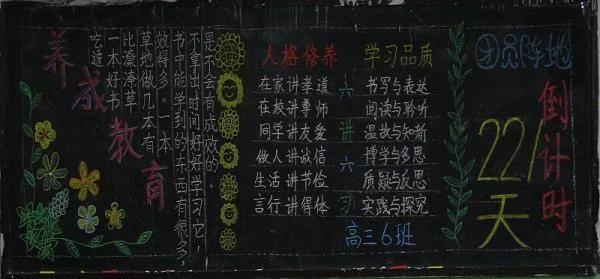 养成教育
吃透
一本好书
比潦潦草
草地做几本有
效得多。一本
书中能学到的东西有很多，
不拿出时间好好学习它，
是不会有成效的、
人格修养
在家讲孝道
在校讲尊师
同学讲友爱
做人讲诚信
生活讲节俭
言行讲得体
六讲六习
学习品质
书写与表达
阅读与聆听
温故与知新
博学与多思
质疑与反思
实践与探究
高三6班
团员阵地
倒计时
221天